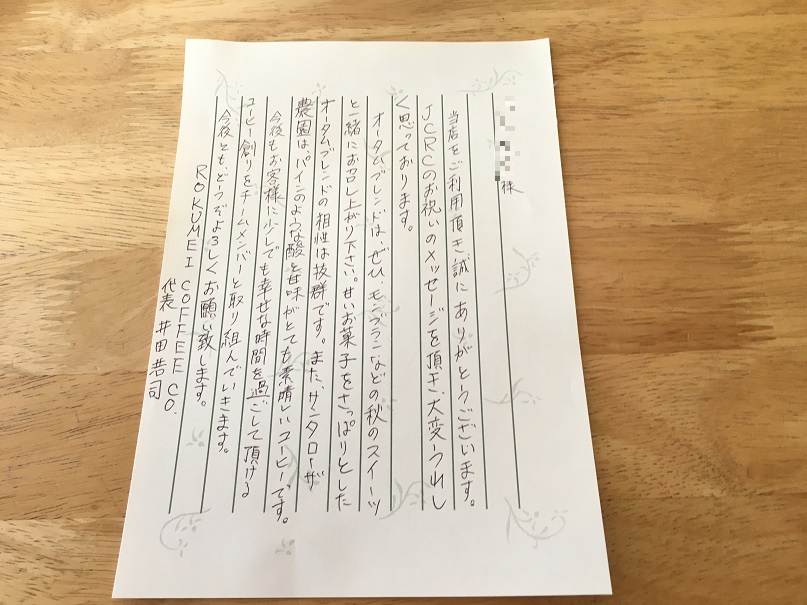 様
当店をご利用頂き誠にありがとうございます。
JCRCのお祝いのメッセージを頂き、大変うれし
く思っております。
オータムブレンドは、ぜひ、モンブランなどの秋のスイーツ
と一緒にお召し上がり下さい。甘いお菓子をさっぱりとした
オータムブレンドの相性は抜群です。また、サンタローザ
農園は、パインのような酸と甘味がとても素晴しいコーヒーです。
今後もお客様に少しでも幸せな時間を過ごして頂ける
コーヒー創りをチームメンバーと取り組んでいきます。
今後ともどうぞよろしくお願い致します。
ROKUMEI COFFEE CO.
代表 井田浩司